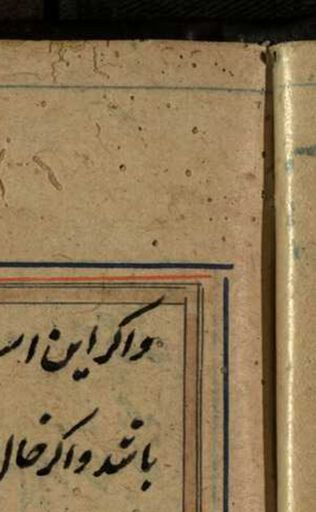 واکر این
باشد واکر خال